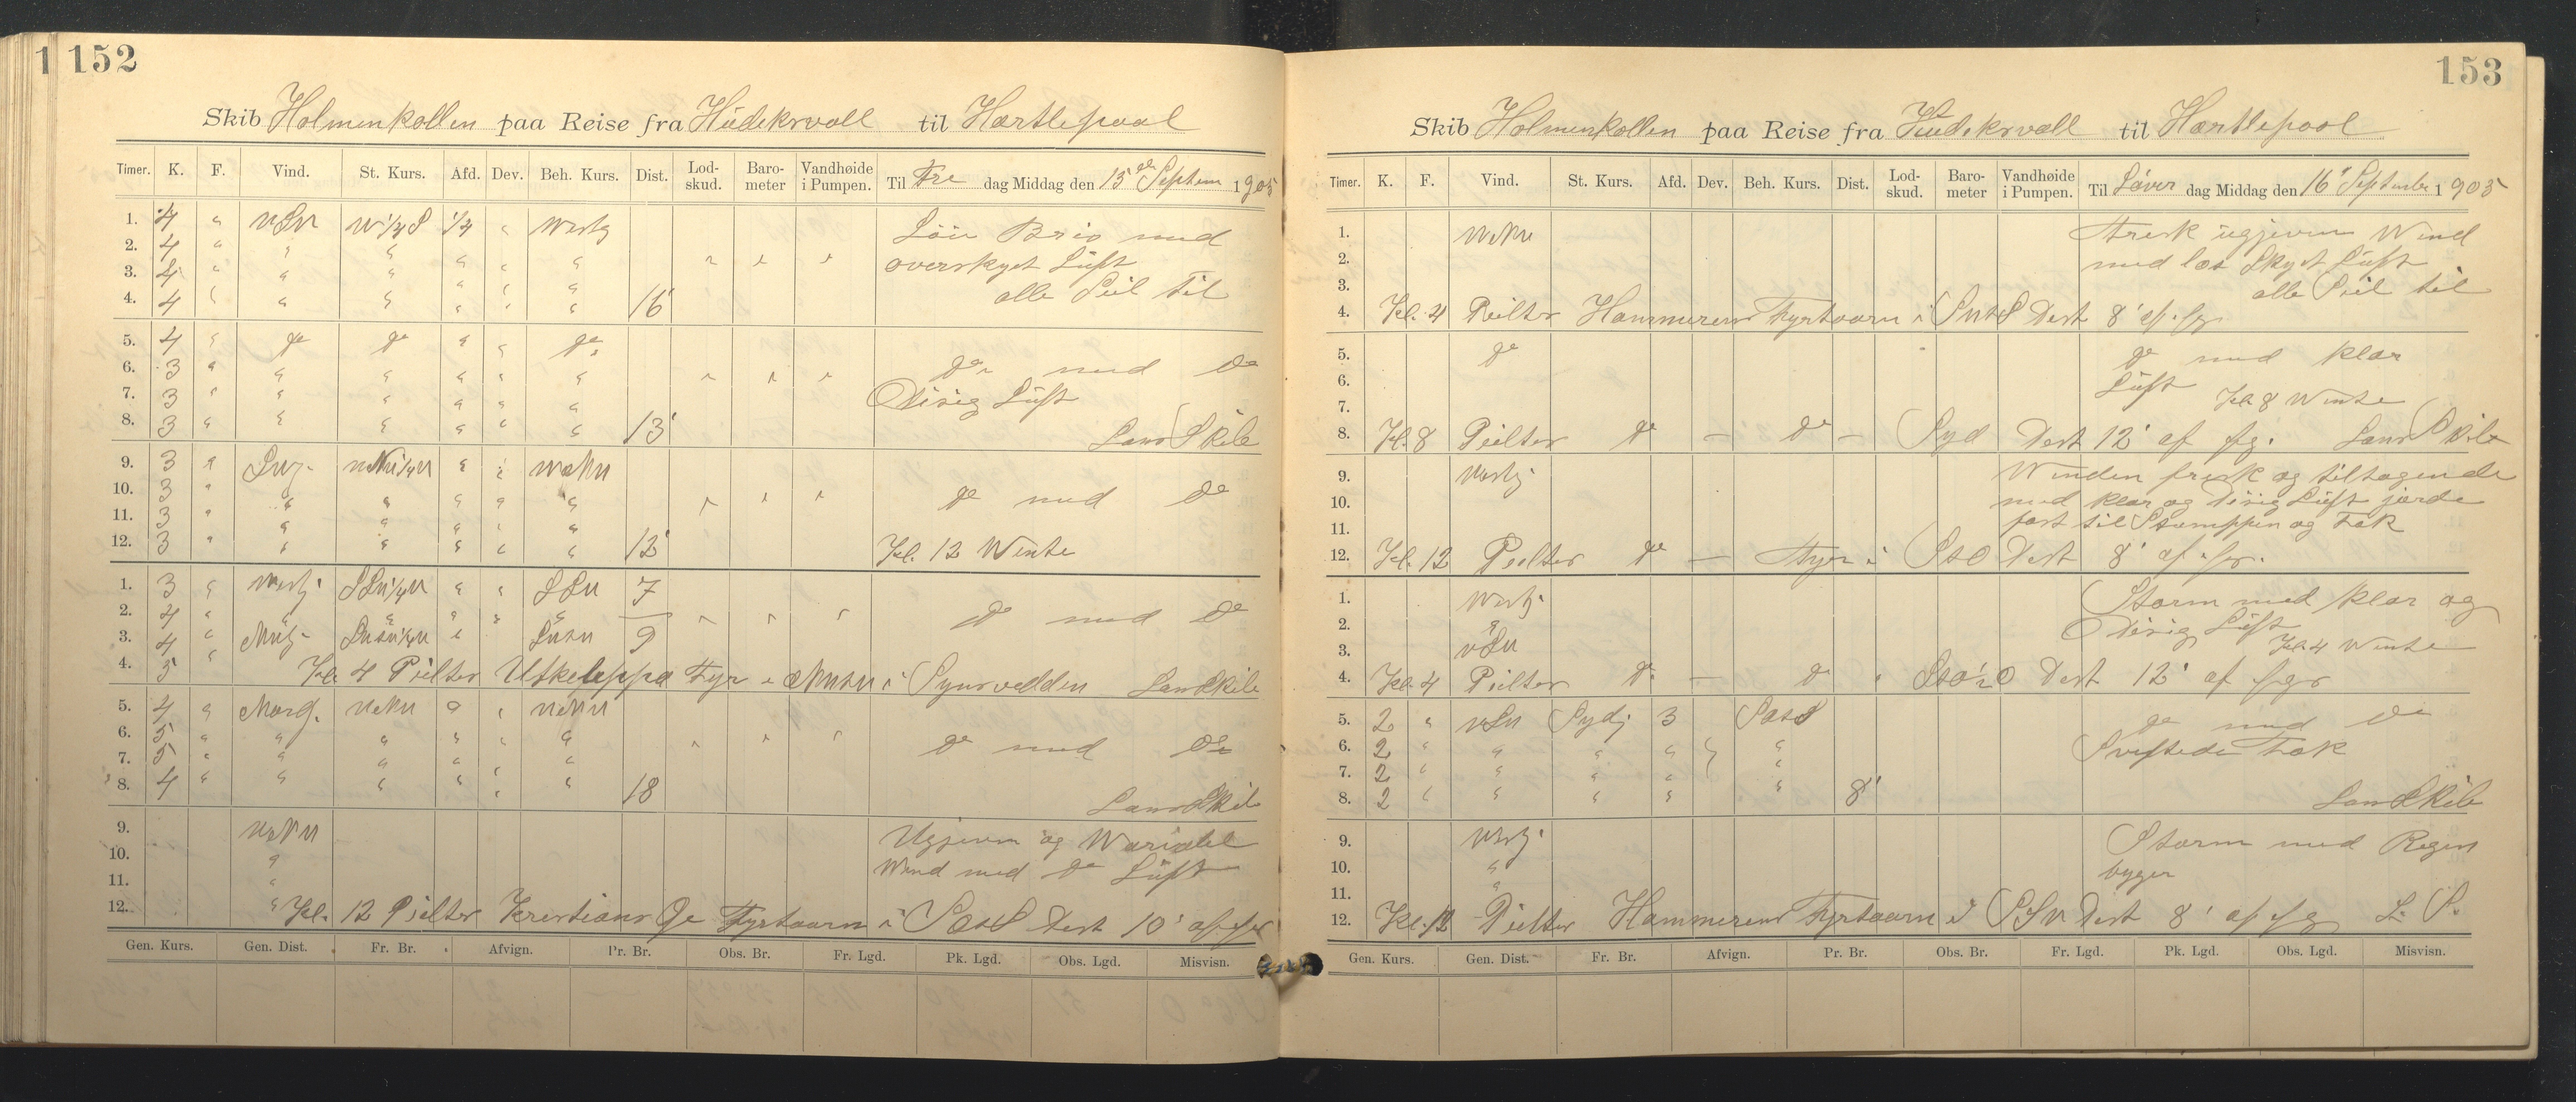 1 152
Skib Holmenkollen paa Reise fra Hudeksvall til Hartlepool
Timer. K. F. Vind. St. Kurs. Afd. Dev. Beh. Kurs. Dist. Lod-skud. Baro-meter Vandhøide i Pumpen. Til Fre dag Middag den 15de Septem 1905
1. 4 " VSV W 1/4 S 1/4 " Westlg Løie Bris med
2. 4 " " " " " " overskyet Luft
3. 4 " " " " " "
4. 4 " " " " " " 16' alle Seil til
5. 4 " do do " " do
6. 3 " " " " " " do med do
7. 3 " " " " " " Disig Luft
8. 3 " " " " " " 13' Lans Skib
9. 3 " " "
10. 3 " " " " " " do med do
11. 3 " " " " " "
12. 3 " " " " " " 12' Kl. 12 Wente
1. 3 " Westlg SSV 1/4 V " " SSV 7
2. 4 " " " " " " do med do
3. 4 " 9
4. 5 " Kl. 4 Peilter Utkleppa Fyr i Lans Skib
5. 4 " "
6. 5 " " " " " " do med do
7. 5 " " " " " "
8. 4 " " " " " " 18 Lans Skib
9. Ugjevn og Variabel
10. " Wind med do Luft
11. "
12. " Kl. 12 Peilter Kristians Øe Fyrtaarn i Dest 10' af fyr
Gen. Kurs. Gen. Dist. Fr. Br. Afvign. Pr. Br. Obs. Br. Fr. Lgd. Pk. Lgd. Obs. Lgd. Misvisn.
153
Skib Holmenkollen paa Reise fra Hudeksvall til Hartlepool
Timer. K. F. Vind. St. Kurs. Afd. Dev. Beh. Kurs. Dist. Lod-skud. Baro-meter Vandhøide i Pumpen. Til Løver dag Middag den 16' September 1905
1. Frisk ugjevn Wind
2. med løs Skyet Luft
3. alle Seil til
4. Kl. 4 Peilter Hammerens Fyrtaarn i Dest 8' af fyr
5. do do med klar
6. Luft
7. Kl. 8 Wente
8. Kl. 8 Peilter do — do — Syd Dest 12' af fyr. Lans Skib
9. Westlg Winden frisk og tiltagende
10. med klar og Disig Luft jorde
11. fast til Stumppen og Fok
12. Kl. 12 Peilter do — Fyr i StO Dest 8' af fyr.
1. Westlg Storm med klar og
2. " Disig Luft
3. VSV Kl. 4 Wente
4. Kl. 4 Peilter do — do " StO 1/2 O Dest 12' af fyr
5. 2 " VSV Sydlg 3 do med do
6. 2 " " " " " Sviftede Fok
7. 2 " " " " "
8. 2 " " " " " 8' Lans Skib
9. Westlg Storm med Regen
10. " byger
11. "
12. Kl. 12 Peilter Hammerens Fyrtaarn i SSV Dest 8' af fyr L. S.
Gen. Kurs. Gen. Dist. Fr. Br. Afvign. Pr. Br. Obs. Br. Fr. Lgd. Pk. Lgd. Obs. Lgd. Misvisn.